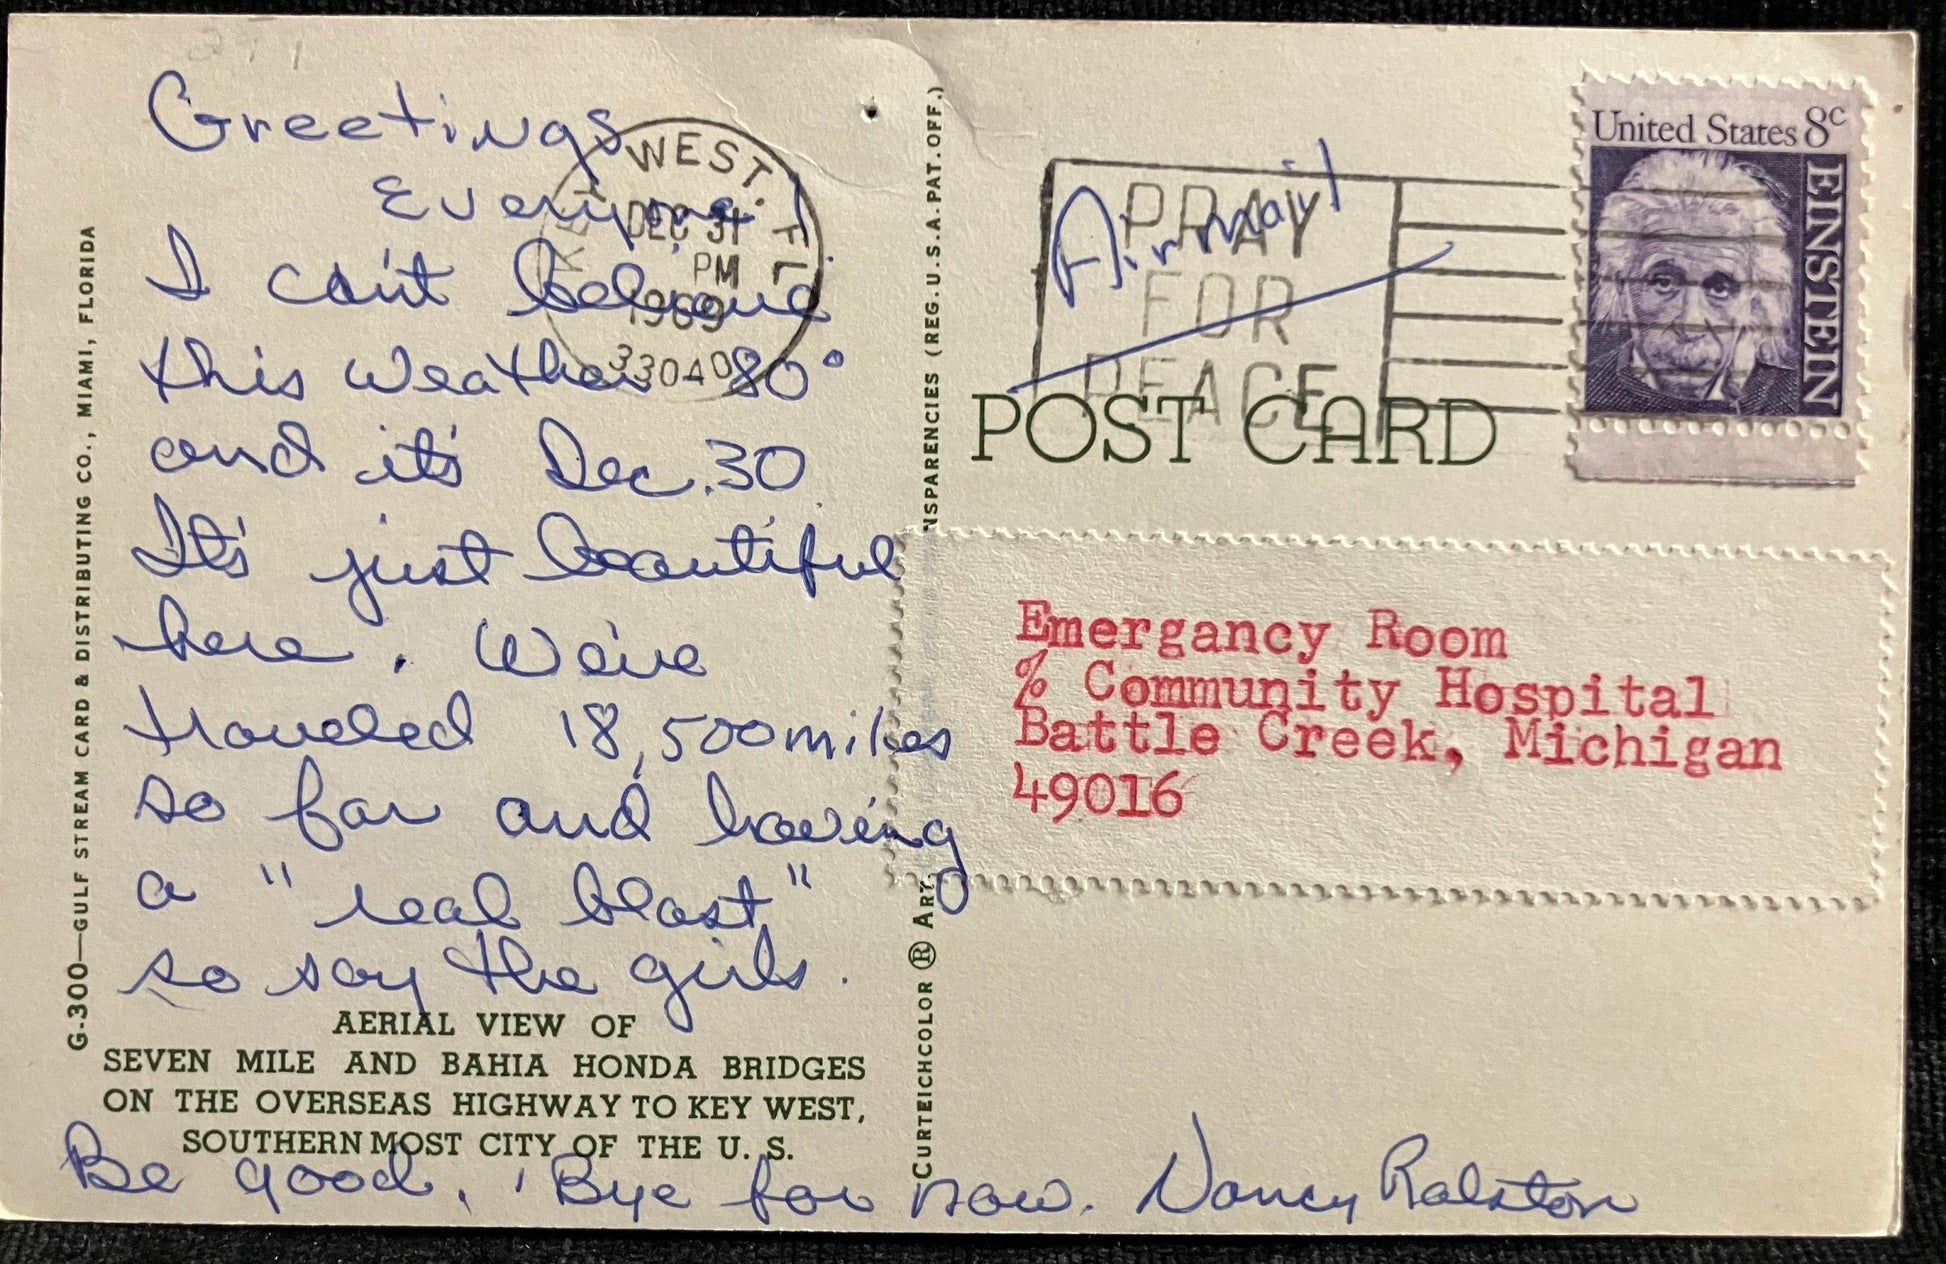 271
Greetings
Everyone!
I can't believe
this weather 80°
and it's Dec. 30.
It's just beautiful
here. We've
traveled 18,500 miles
so far and having
a "real blast,"
so say the girls.
AERIAL VIEW OF
SEVEN MILE AND BAHIA HONDA BRIDGES
ON THE OVERSEAS HIGHWAY TO KEY WEST,
SOUTHERNMOST CITY OF THE U. S.
Be good. Bye for now. Nancy Ralston
G-300—GULF STREAM CARD & DISTRIBUTING CO., MIAMI, FLORIDA
KEY WEST, FL
DEC 31
PM
1969
33040
CURTEICHCOLOR ® ART
NSPARENCIES (REG. U.S.A. PAT. OFF.)
Airmail
PRAY
FOR
PEACE
POST CARD
United States 8c
EINSTEIN
Emergancy Room
% Community Hospital
Battle Creek, Michigan
49016